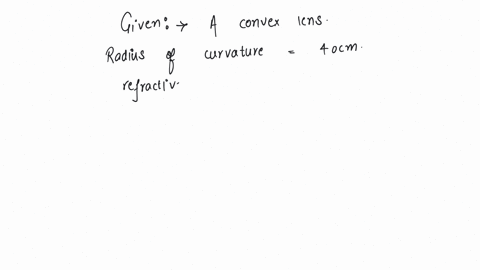 Given:→ A convex lens.
Radius of curvature = 40cm.
refractiv